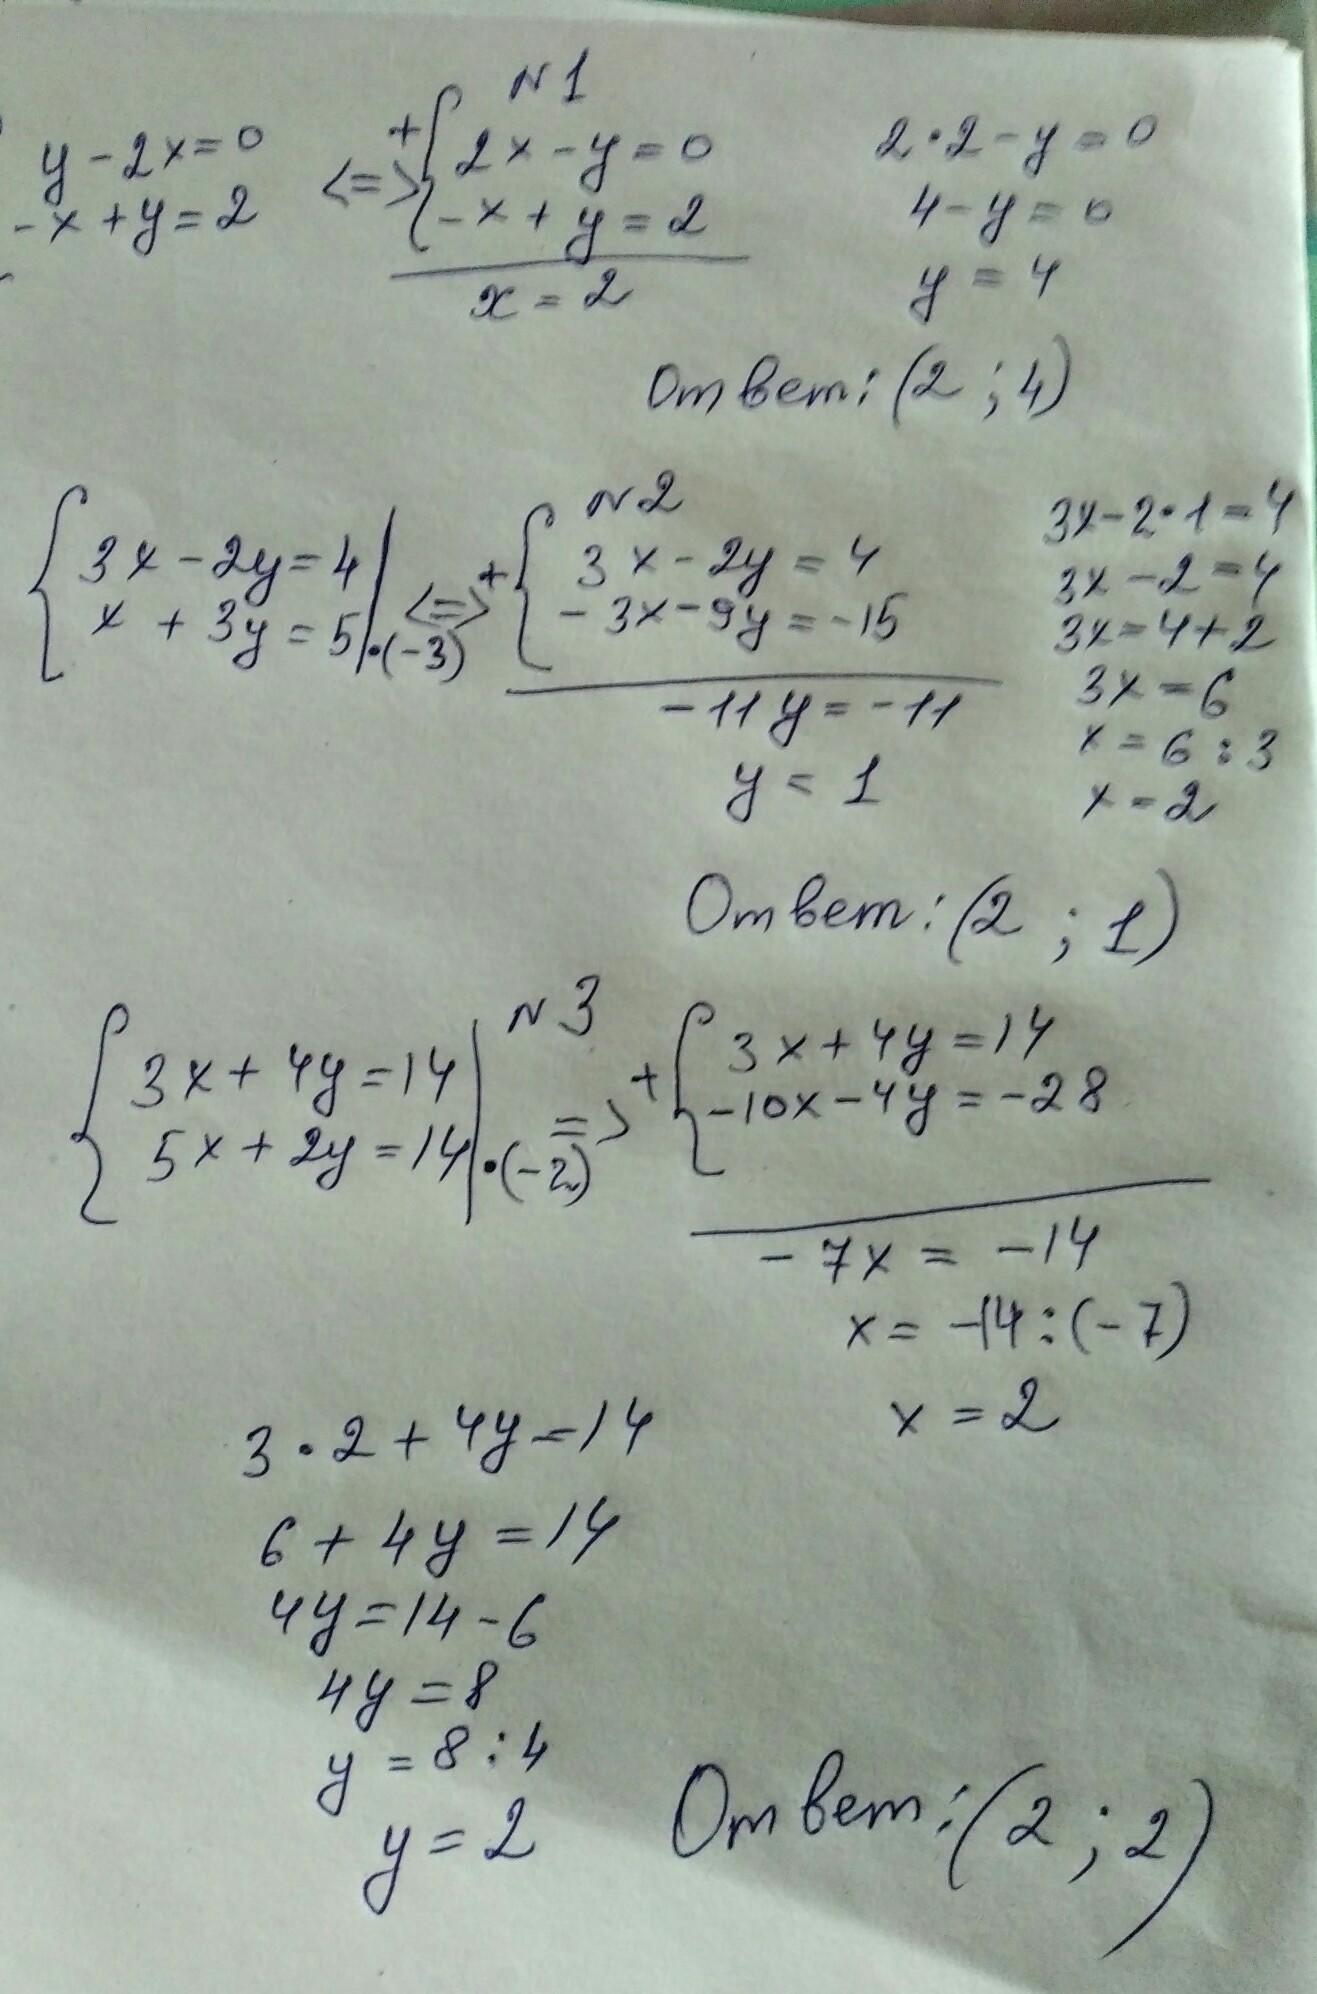 N1
y - 2x = 0
-x + y = 2
<=>
+ { 2x - y = 0
-x + y = 2
x = 2
2·2 - y = 0
4 - y = 0
y = 4
Ответ: (2 ; 4)
N2
{ 3x - 2y = 4 |
x + 3y = 5 | ·(-3)
<=>
+ { 3x - 2y = 4
-3x - 9y = -15
-11y = -11
y = 1
3x - 2·1 = 4
3x - 2 = 4
3x = 4 + 2
3x = 6
x = 6 : 3
x = 2
Ответ: (2 ; 1)
N3
{ 3x + 4y = 14 |
5x + 2y = 14 | ·(-2)
=>
+ { 3x + 4y = 14
-10x - 4y = -28
-7x = -14
x = -14 : (-7)
x = 2
3·2 + 4y = 14
6 + 4y = 14
4y = 14 - 6
4y = 8
y = 8 : 4
y = 2
Ответ: (2 ; 2)